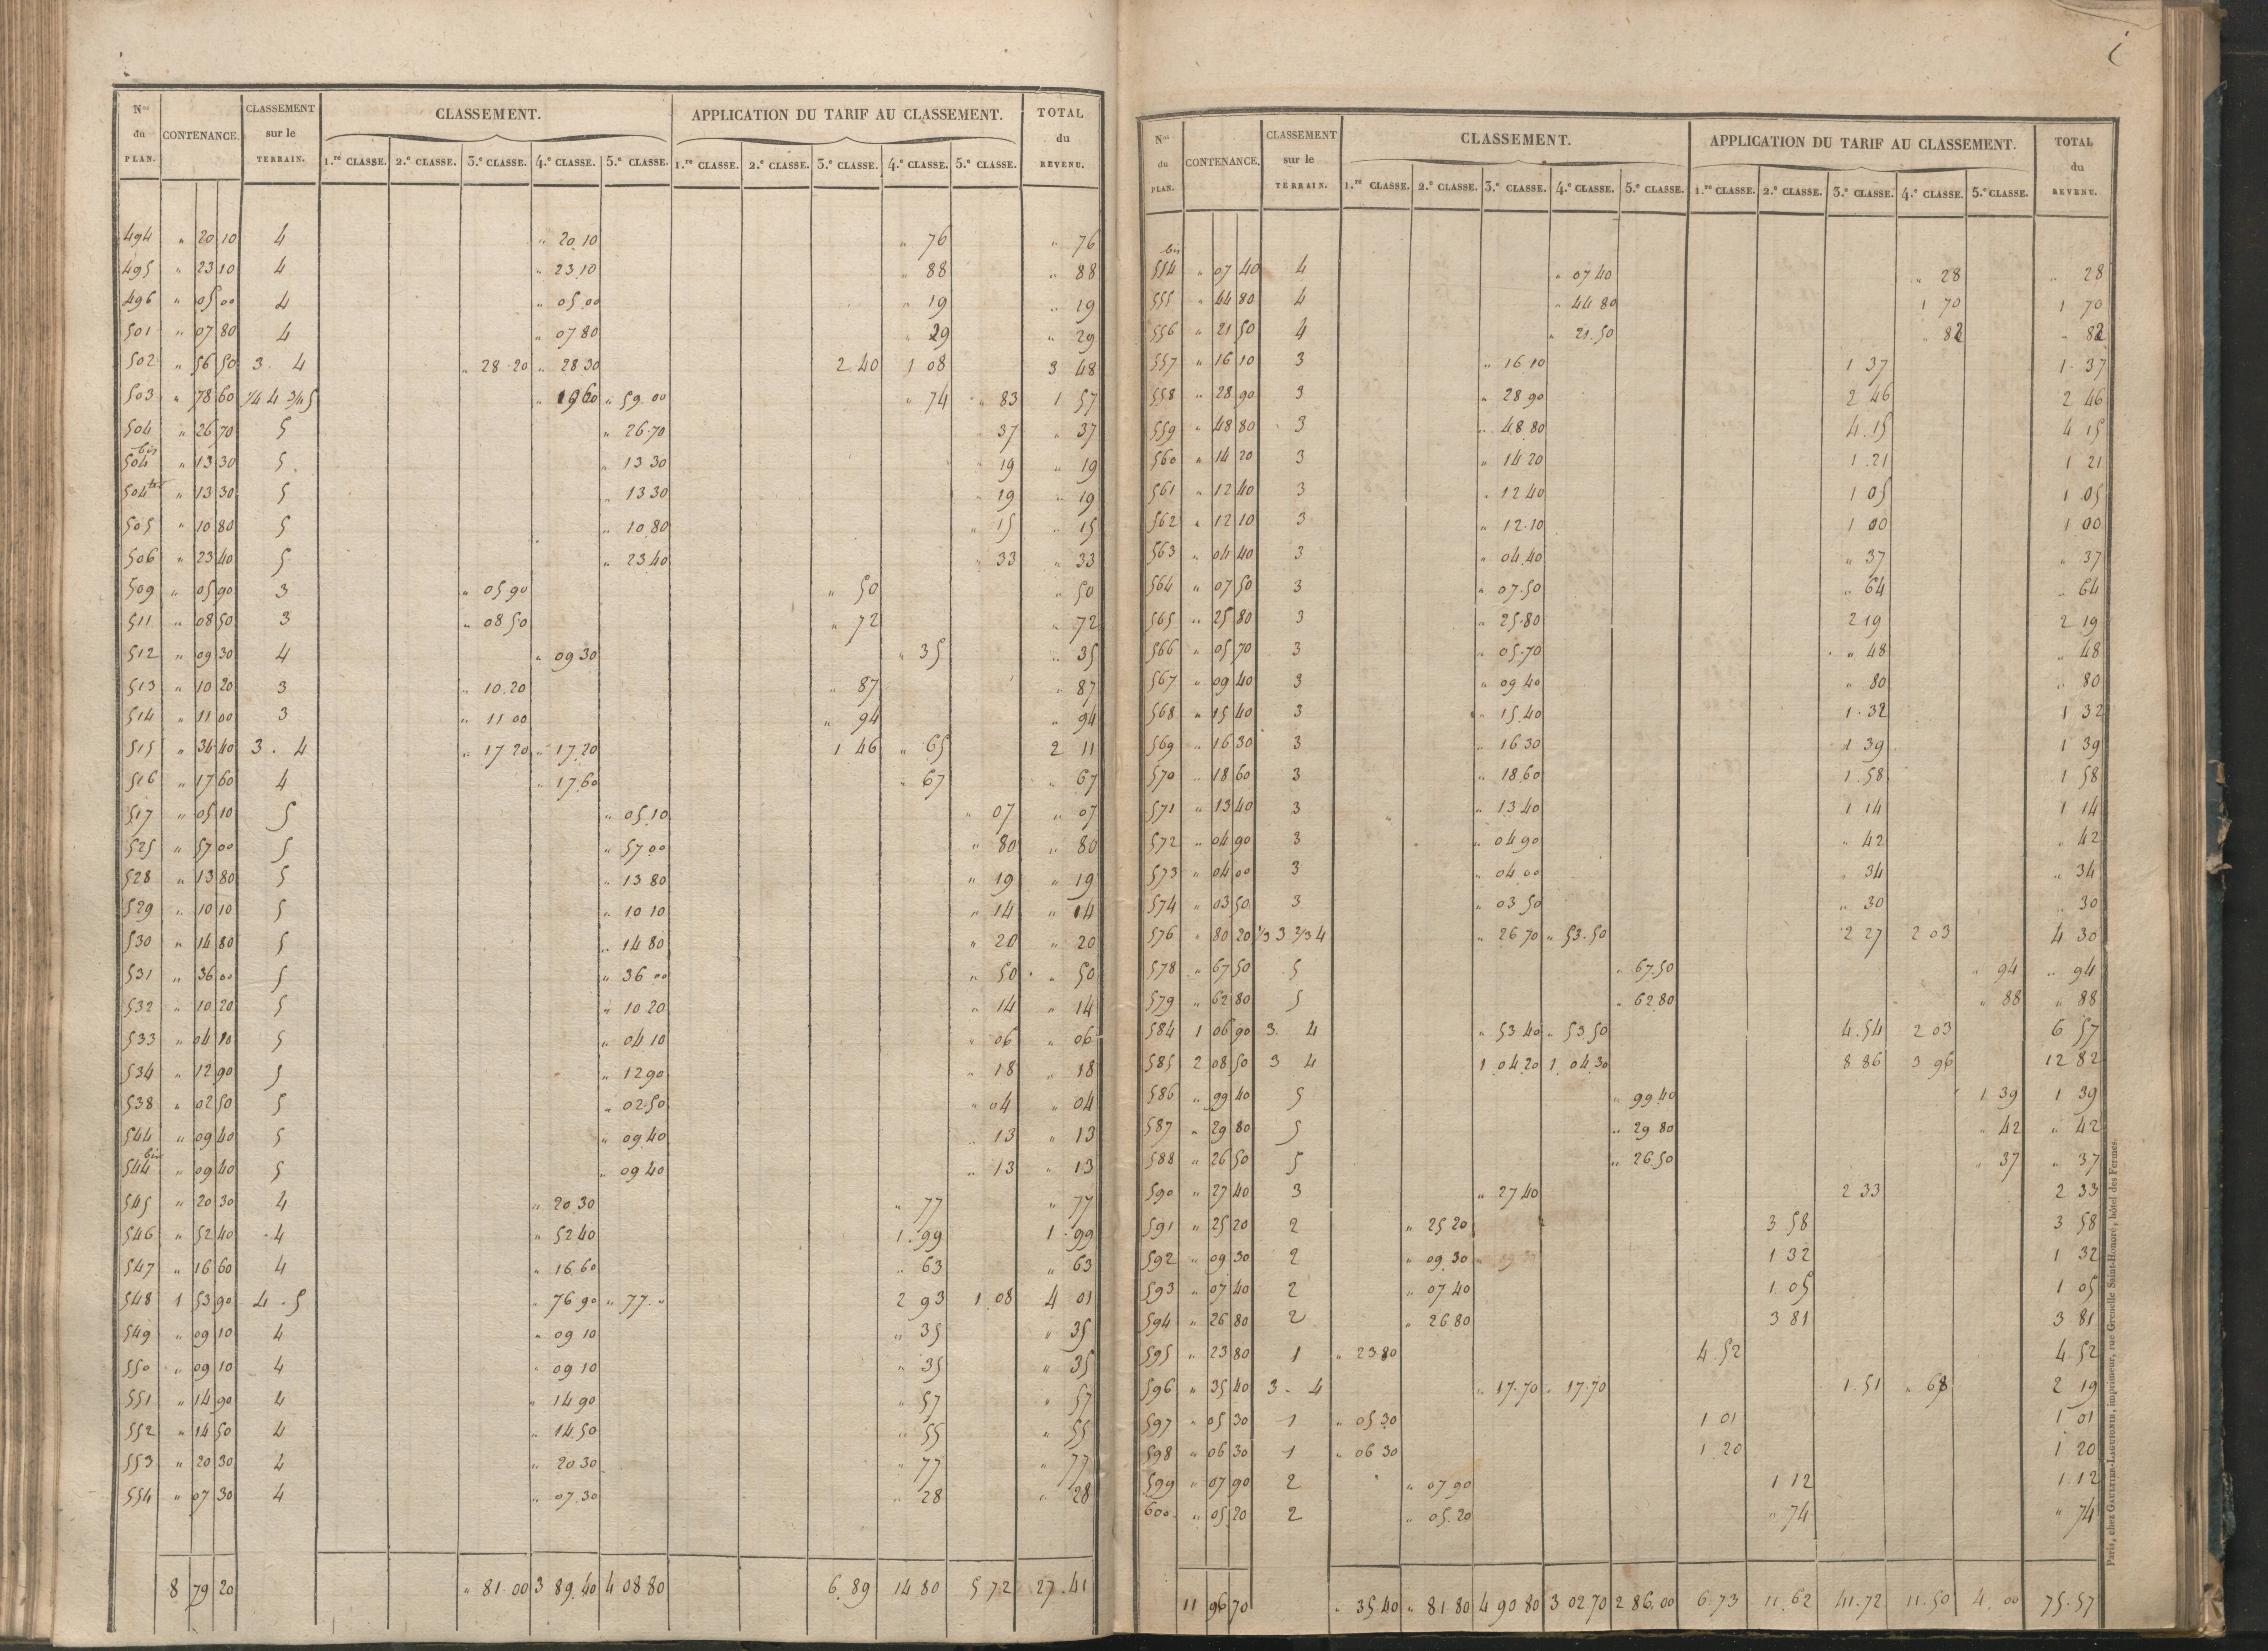 Nos du PLAN. CONTENANCE. CLASSEMENT sur le TERRAIN. CLASSEMENT. APPLICATION DU TARIF AU CLASSEMENT. TOTAL du REVENU.
1.re CLASSE. 2.e CLASSE. 3.e CLASSE. 4.e CLASSE. 5.e CLASSE. 1.re CLASSE. 2.e CLASSE. 3.e CLASSE. 4.e CLASSE. 5.e CLASSE.
494 " 20 10 4 " 20.10 " 76 " 76
495 " 23 10 4 " 23.10 " 88 " 88
496 " 05 00 4 " 05.00 " 19 " 19
501 " 07 80 4 " 07.80 " 29 " 29
502 " 56 50 3. 4 " 28.20 " 28 30 2 40 1 08 3 48
503 " 78 60 1/4 4 3/4 5 " 19 60 " 59.00 " 74 " 83 1 57
504 " 26 70 5 " 26.70 " 37 " 37
504 bis " 13 30 5 " 13 30 " 19 " 19
504 ter " 13 30 5 " 13 30 " 19 " 19
505 " 10 80 5 " 10.80 " 15 " 15
506 " 23 40 5 " 23.40 " 33 " 33
509 " 05 90 3 " 05.90 " 50 " 50
511 " 08 50 3 " 08 50 " 72 " 72
512 " 09 30 4 " 09 30 " 35 " 35
513 " 10 20 3 " 10.20 " 87 " 87
514 " 11 00 3 " 11 00 " 94 " 94
515 " 34 40 3. 4 " 17 20 " 17.20 1 46 " 65 2 11
516 " 17 60 4 " 17.60 " 67 " 67
517 " 05 10 5 " 05.10 " 07 " 07
525 " 57 00 5 " 57 00 " 80 " 80
528 " 13 80 5 " 13 80 " 19 " 19
529 " 10 10 5 " 10 10 " 14 " 14
530 " 14 80 5 " 14 80 " 20 " 20
531 " 36 00 5 " 36 00 " 50 " 50
532 " 10 20 5 " 10 20 " 14 " 14
533 " 04 10 5 " 04.10 " 06 " 06
534 " 12 90 5 " 12 90 " 18 " 18
538 " 02 50 5 " 02.50 " 04 " 04
544 " 09 40 5 " 09.40 " 13 " 13
544 bis " 09 40 5 " 09 40 " 13 " 13
545 " 20 30 4 " 20.30 " 77 " 77
546 " 52 40 4 " 52 40 1.99 1.99
547 " 16 60 4 " 16.60 " 63 " 63
548 1 53 90 4.5 " 76 90 " 77." 2 93 1.08 4 01
549 " 09 10 4 " 09 10 " 35 " 35
550 " 09 10 4 " 09 10 " 35 " 35
551 " 14 90 4 " 14 90 " 57 " 57
552 " 14 50 4 " 14.50 " 55 " 55
553 " 20 30 4 " 20 30 " 77 " 77
554 " 07 30 4 " 07.30 " 28 " 28
8 79 20 " 81.00 3 89.40 4 08 80 6.89 14 80 5 72 27.41
Nos du PLAN. CONTENANCE. CLASSEMENT sur le TERRAIN. CLASSEMENT. APPLICATION DU TARIF AU CLASSEMENT. TOTAL du REVENU.
1.re CLASSE. 2.e CLASSE. 3.e CLASSE. 4.e CLASSE. 5.e CLASSE. 1.re CLASSE. 2.e CLASSE. 3.e CLASSE. 4.e CLASSE. 5.e CLASSE.
554 bis " 07 40 4 " 07 40 " 28 " 28
555 " 44 80 4 " 44 80 1 70 1 70
556 " 21 50 4 " 21.50 " 82 " 82
557 " 16 10 3 " 16.10 1 37 1.37
558 " 28 90 3 " 28 90 2 46 2 46
559 " 48 80 3 " 48.80 4.15 4 15
560 " 14 20 3 " 14 20 1.21 1 21
561 " 12 40 3 " 12 40 1 05 1 05
562 " 12 10 3 " 12.10 1 00 1 00
563 " 04 40 3 " 04.40 " 37 " 37
564 " 07 50 3 " 07.50 " 64 " 64
565 " 25 80 3 " 25.80 2 19 2 19
566 " 05 70 3 " 05.70 " 48 " 48
567 " 09 40 3 " 09 40 " 80 " 80
568 " 15 40 3 " 15.40 1.32 1 32
569 " 16 30 3 " 16 30 1 39 1 39
570 " 18 60 3 " 18.60 1.58 1 58
571 " 13 40 3 " 13.40 1 14 1 14
572 " 04 90 3 " 04 90 " 42 " 42
573 " 04 00 3 " 04 00 " 34 " 34
574 " 03 50 3 " 03 50 " 30 " 30
576 " 80 20 1/3 3 2/3 4 " 26 70 " 53.50 2 27 2 03 4 30
578 " 67 50 5 " 67.50 " 94 " 94
579 " 62 80 5 " 62 80 " 88 " 88
584 1 06 90 3. 4 " 53 40 " 53.50 4.54 2 03 6 57
585 2 08 50 3 4 1 04.20 1 04.30 8 86 3 96 12 82
586 " 99 40 5 " 99.40 1 39 1 39
587 " 29 80 5 " 29 80 " 42 " 42
588 " 26 50 5 " 26.50 " 37 " 37
590 " 27 40 3 " 27 40 2 33 2 33
591 " 25 20 2 " 25 20 3 58 3 58
592 " 09 30 2 " 09.30 1 32 1 32
593 " 07 40 2 " 07 40 1 05 1 05
594 " 26 80 2 " 26 80 3 81 3 81
595 " 23 80 1 " 23 80 4.52 4.52
596 " 35 40 3. 4 " 17.70 " 17.70 1.51 " 68 2 19
597 " 05 30 1 " 05 30 1 01 1 01
598 " 06 30 1 " 06 30 1 20 1 20
599 " 07 90 2 " 07.90 1 12 1 12
600 " 05 20 2 " 05.20 " 74 " 74
11 96 70 " 35.40 " 81.80 4 90 80 3 02 70 2 86.00 6.73 11.62 41.72 11.50 4.00 75.57
Paris, chez GAULTIER-LAGUIONIE, imprimeur, rue Grenelle Saint-Honoré, hôtel des Fermes.